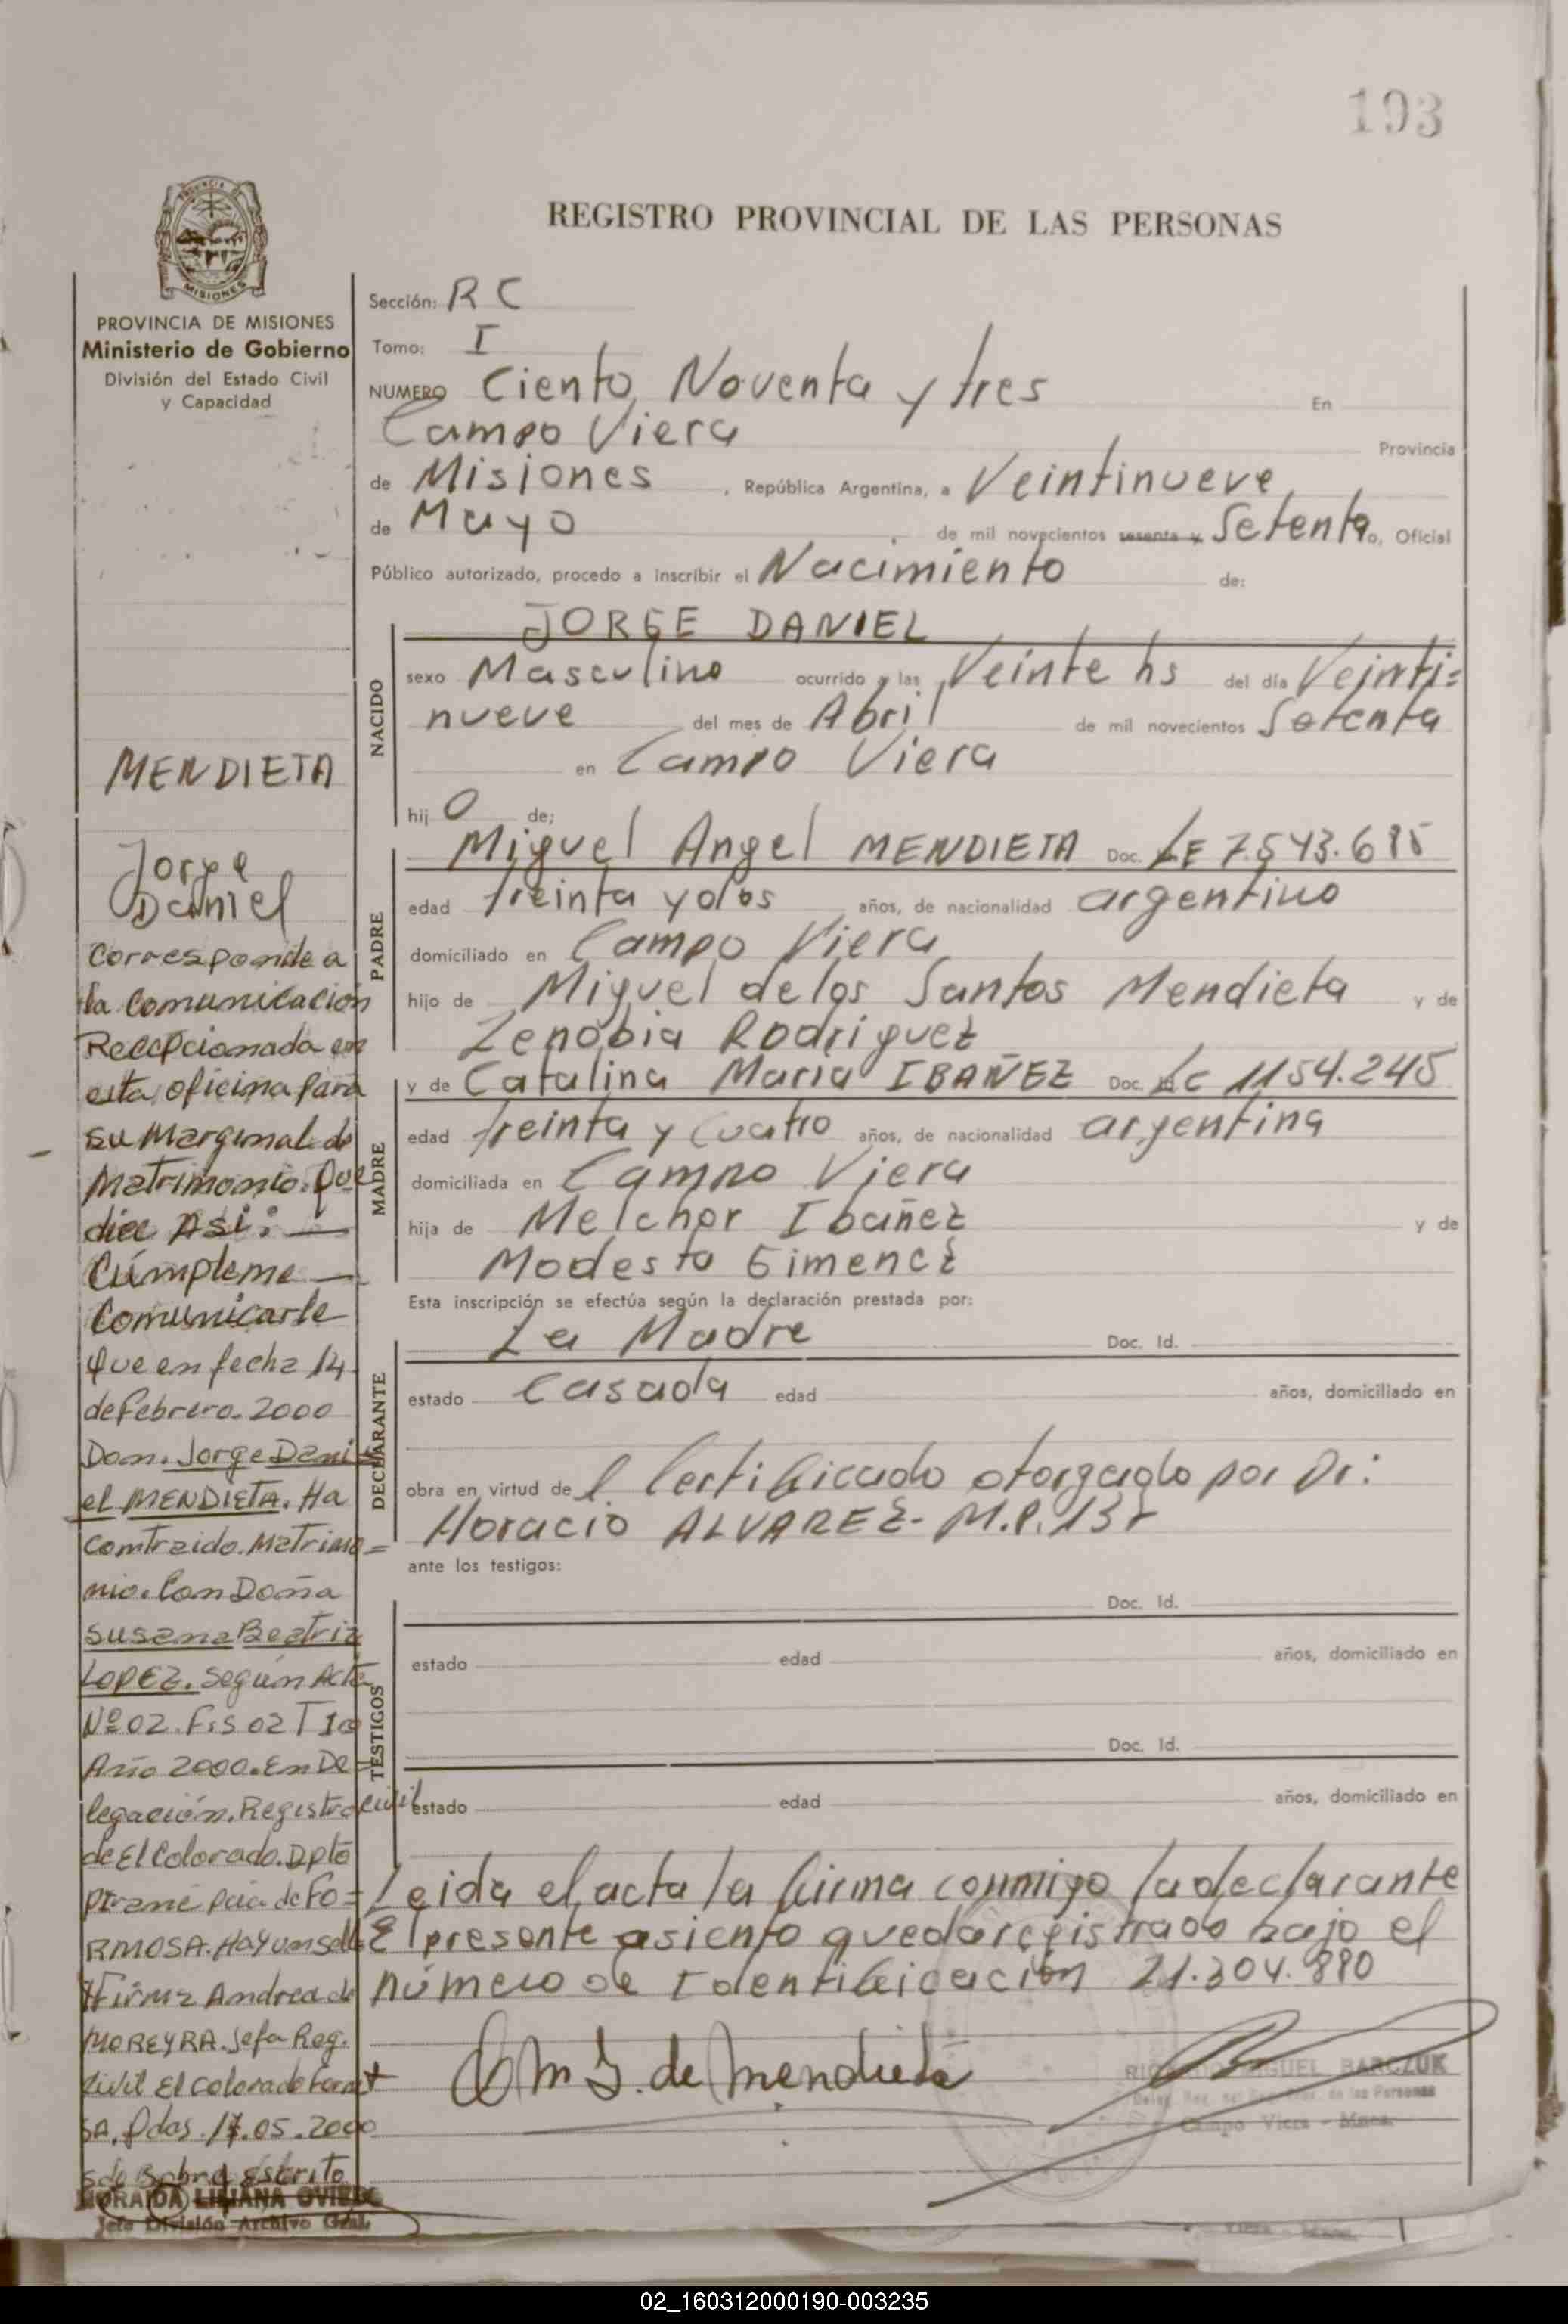 193
REGISTRO PROVINCIAL DE LAS PERSONAS
PROVINCIA DE MISIONES
Ministerio de Gobierno
División del Estado Civil
y Capacidad
Sección: R C
Tomo: I
NUMERO Ciento Noventa y tres En
Campo Viera Provincia
de Misiones, República Argentina, a Veintinueve
de Mayo de mil novecientos sesenta y Setenta o, Oficial
Público autorizado, procedo a inscribir el Nacimiento de:
NACIDO
JORGE DANIEL
sexo Masculino ocurrido a las Veinte hs del día Veinti=
nueve del mes de Abril de mil novecientos Setenta
en Campo Viera
hij o de;
PADRE
Miguel Angel MENDIETA Doc. LE 7.543.685
edad treinta y dos años, de nacionalidad argentino
domiciliado en Campo Viera
hijo de Miguel de los Santos Mendieta y de
Zenobia Rodriguez
MADRE
y de Catalina Maria IBAÑEZ Doc. LC 1154.245
edad treinta y cuatro años, de nacionalidad argentina
domiciliada en Campo Viera
hija de Melchor Ibañez y de
Modesta Gimenez
Esta inscripción se efectúa según la declaración prestada por:
DECLARANTE
La Madre Doc. Id.
estado Casada edad años, domiciliado en
obra en virtud de l Certificado otorgado por Dr:
Horacio ALVAREZ - M.P.
ante los testigos:
TESTIGOS
Doc. Id.
estado edad años, domiciliado en
Doc. Id.
estado edad años, domiciliado en
Leida el acta la firma conmigo la declarante
El presente asiento queda registrado bajo el
número de Identificación 21.304.880
C M I. de Mendieta
RICARDO MIGUEL BARCZUK
de las Personas
Campo Viera - Mnes.
MENDIETA
Jorge
Daniel
Corresponde a
la Comunicación
Recepcionada en
esta oficina para
su Marginal de
Matrimonio. Que
dice Asi: —
Cúmpleme —
Comunicarle
que en fecha 14
de Febrero. 2000
Don. Jorge Dani
el MENDIETA. Ha
contraido. Matrimo=
nio. Con Doña
Susana Beatriz
LOPEZ. Según Acta
Nº 02. F:S 02 T 1º
Año 2000. En De=
legación. Registro civil
de El Colorado. Dpto
Pirané pcia de Fo=
RMOSA. Hay un sello
Firma Andrea de
MOREYRA. Jefa Reg.
Civil El Colorado
SA. Pdas. 17.05.2000
Sobre Escrito
LILIANA OVIEDO
Jefe División Archivo Gral.
02_160312000190-003235